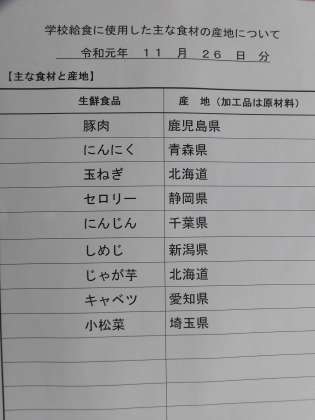 学校給食に使用した主な食材の産地について
令和元年 11 月 26 日 分
【主な食材と産地】
生鮮食品 産 地（加工品は原材料）
豚肉 鹿児島県
にんにく 青森県
玉ねぎ 北海道
セロリー 静岡県
にんじん 千葉県
しめじ 新潟県
じゃが芋 北海道
キャベツ 愛知県
小松菜 埼玉県